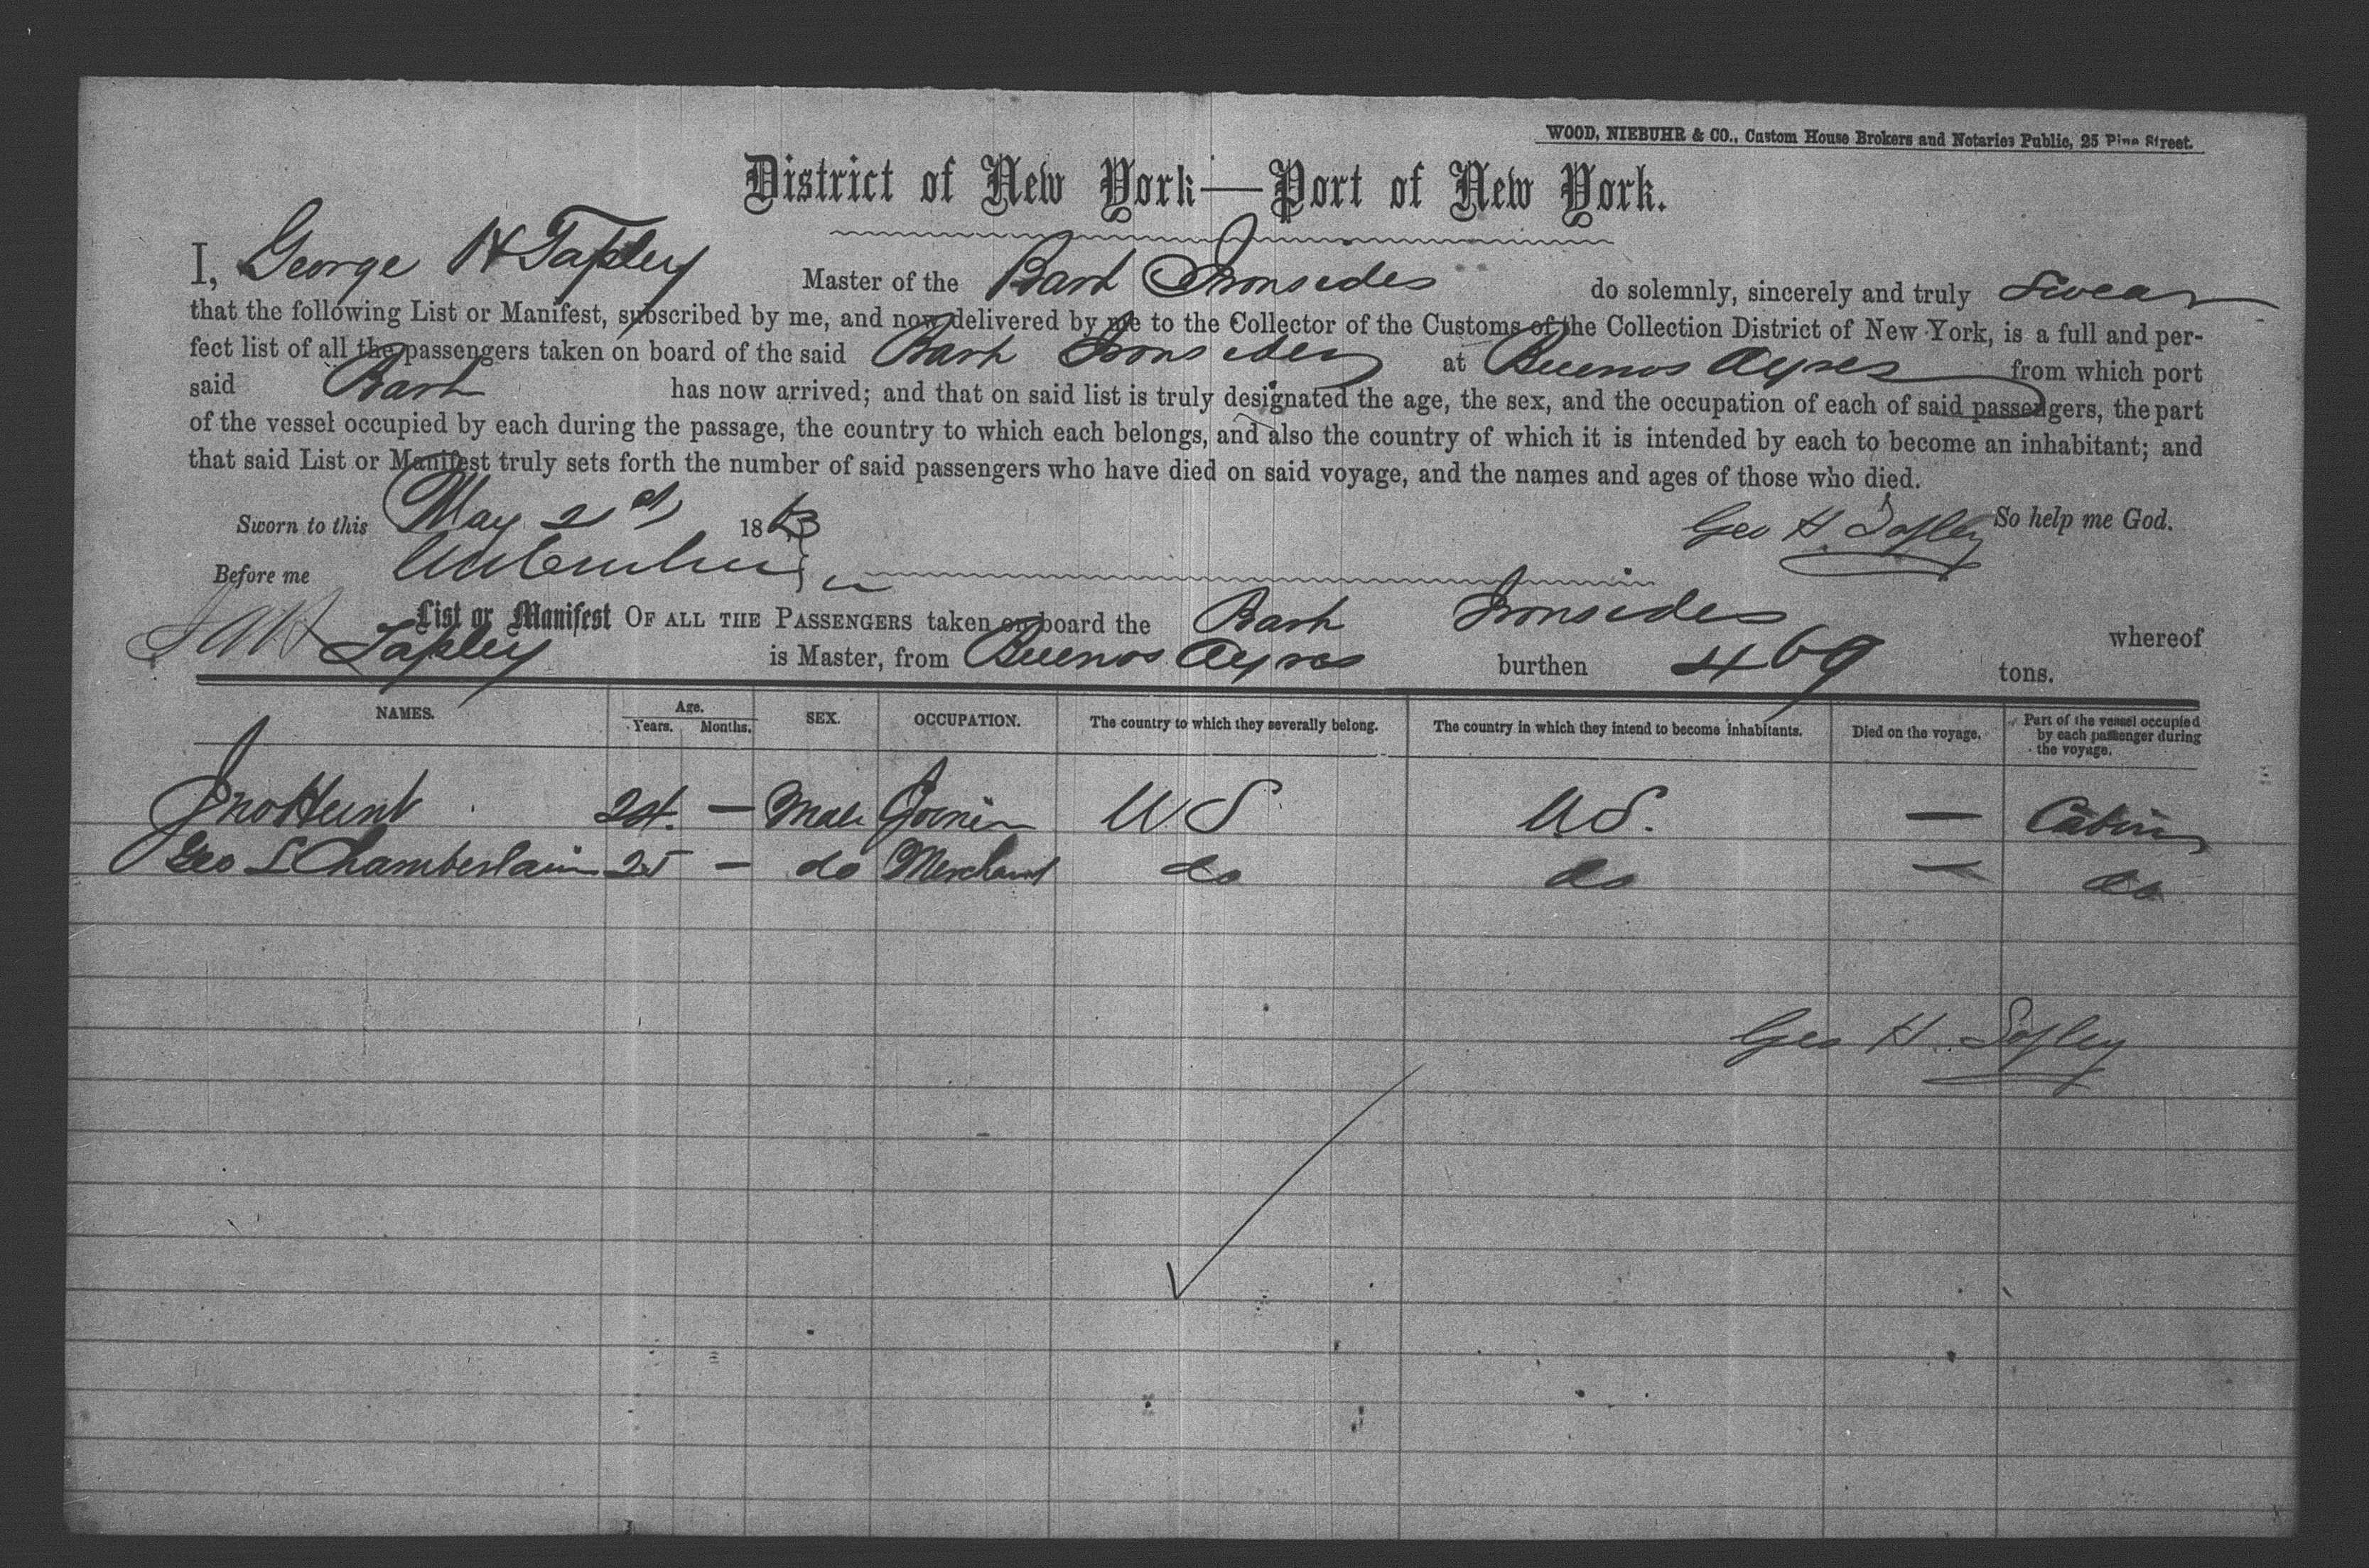 WOOD, NIEBUHR & CO., Custom House Brokers and Notaries Public, 25 Pine Street.
District of New York—Port of New York.
I, George H Tapley Master of the Bark Ironsides do solemnly, sincerely and truly Swear
that the following List or Manifest, subscribed by me, and now delivered by me to the Collector of the Customs of the Collection District of New York, is a full and per-
fect list of all the passengers taken on board of the said Bark Ironsides at Buenos Ayres from which port
said Bark has now arrived; and that on said list is truly designated the age, the sex, and the occupation of each of said passengers, the part
of the vessel occupied by each during the passage, the country to which each belongs, and also the country of which it is intended by each to become an inhabitant; and
that said List or Manifest truly sets forth the number of said passengers who have died on said voyage, and the names and ages of those who died.
Sworn to this May 2d 1863 Geo H. Tapley So help me God.
Before me
List or Manifest OF ALL THE PASSENGERS taken on board the Bark Ironsides whereof
Tapley is Master, from Buenos Ayres burthen 469 tons.
NAMES. Age. Years. Months. SEX. OCCUPATION. The country to which they severally belong. The country in which they intend to become inhabitants. Died on the voyage. Part of the vessel occupied by each passenger during the voyage.
Jno Hunt 24. — Male Joiner U S U S. — Cabin
Geo L Chamberlain 25 — do Merchant do do — do
Geo H. Tapley